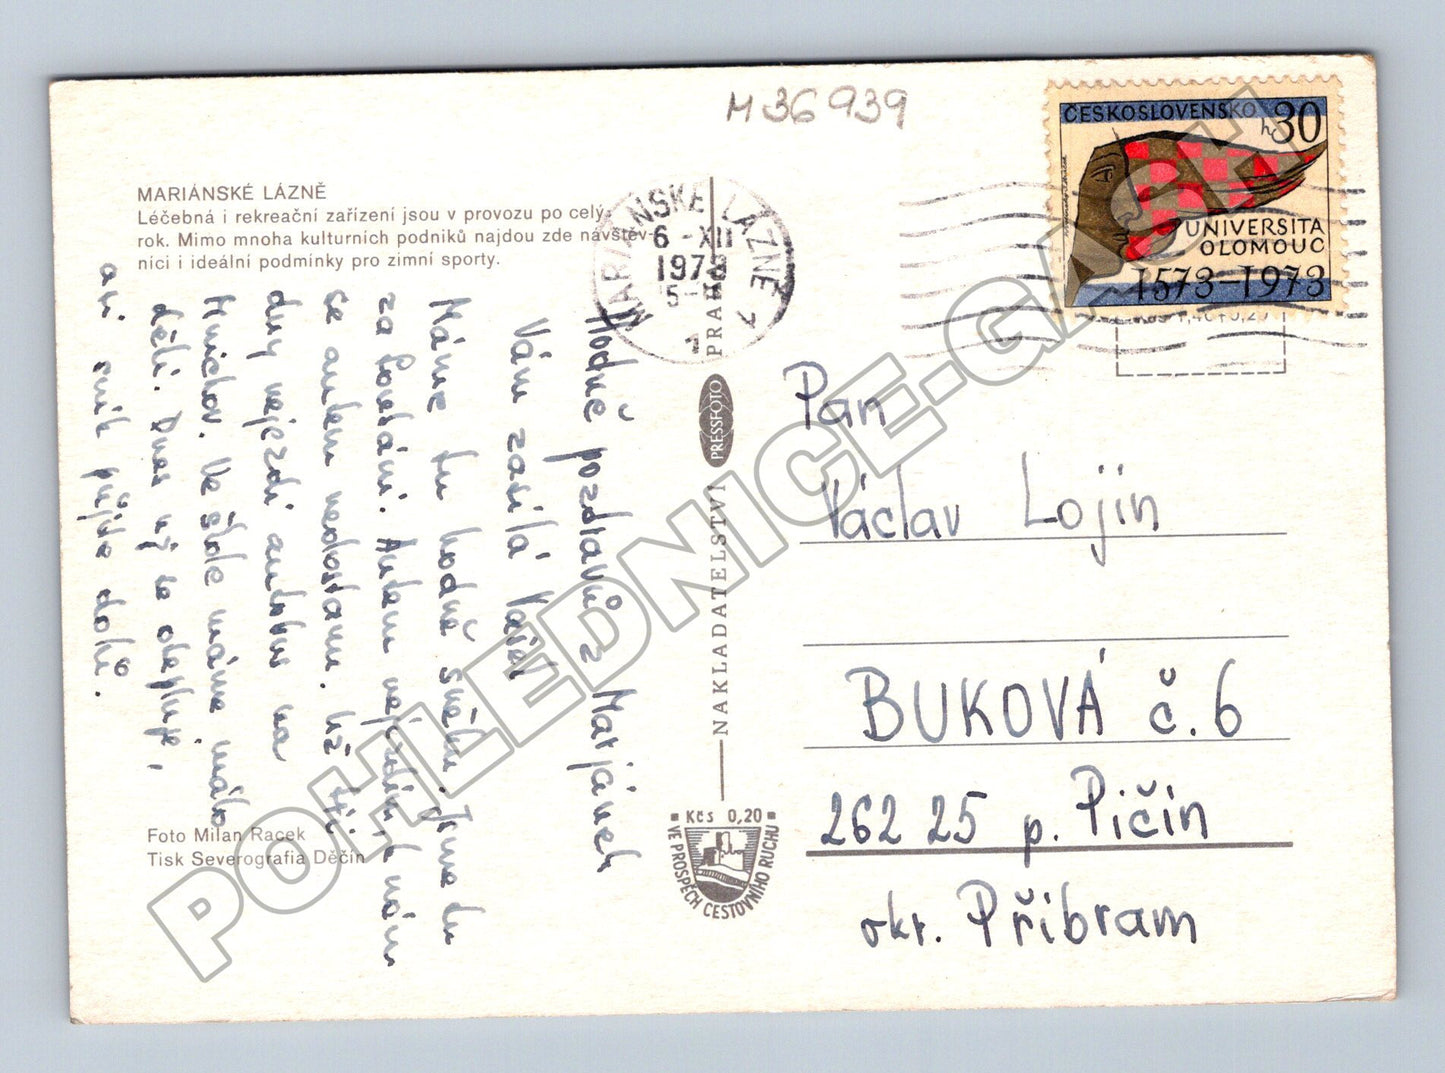 M 36 939
MARIÁNSKÉ LÁZNĚ
Léčebná i rekreační zařízení jsou v provozu po celý
rok. Mimo mnoha kulturních podniků najdou zde návštěv-
níci i ideální podmínky pro zimní sporty.
Hodně pozdravů z Mariánek
Vám zasílá Karel
Máme tu hodně sněhu. Jsme tu
za Továrnami. Autem nejezdím, k nám
se autem nedostanu. Už tři
dny nejezdí autobus na
Hnichov. Ve škole máme málo
dětí. Dnes už se otepluje,
asi sníh půjde dolů.
Foto Milan Racek
Tisk Severografia Děčín
MARIÁNSKÉ LÁZNĚ 1
6 -XII
1973
NAKLADATELSTVÍ PRESSFOTO PRAHA
Kčs 0,20
VE PROSPĚCH CESTOVNÍHO RUCHU
ČESKOSLOVENSKO
h 30
UNIVERSITA
OLOMOUC
1573-1973
Kčs 1,40+0,20
Pan
Václav Lojin
BUKOVÁ č. 6
262 25 p. Pičín
okr. Příbram
POHLEDNICE-GASCH